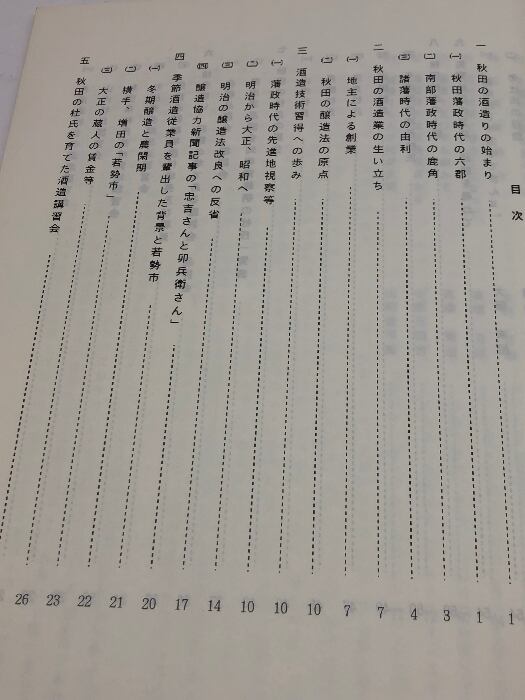 目次
一 秋田の酒造りの始まり 1
㈠ 秋田藩政時代の六郡 1
㈡ 南部藩政時代の鹿角 3
㈢ 諸藩時代の由利 4
二 秋田の酒造業の生い立ち 7
㈠ 地主による創業 7
㈡ 秋田の醸造法の原点 10
三 酒造技術習得への歩み 10
㈠ 藩政時代の先進地視察等 10
㈡ 明治から大正、昭和へ 14
㈢ 明治の醸造法改良への反省 17
㈣ 醸造協力新聞記事の「忠吉さんと卯兵衛さん」 20
四 季節酒造従業員を輩出した背景と若勢市 21
㈠ 冬期醸造と農閑期 22
㈡ 横手、増田の「若勢市」 23
㈢ 大正の蔵人の賃金等 26
五 秋田の杜氏を育てた酒造講習会